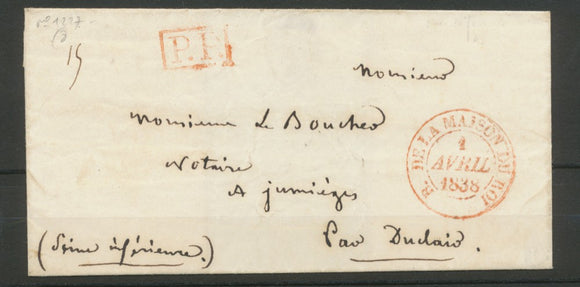 n° 1227
15
P.P.
Monsieur
Monsieur Le Boucher
Notaire
A jumièges
Par Duclair.
(Seine inférieure.)
B. DE LA MAISON DU ROI
1
AVRIL
1838